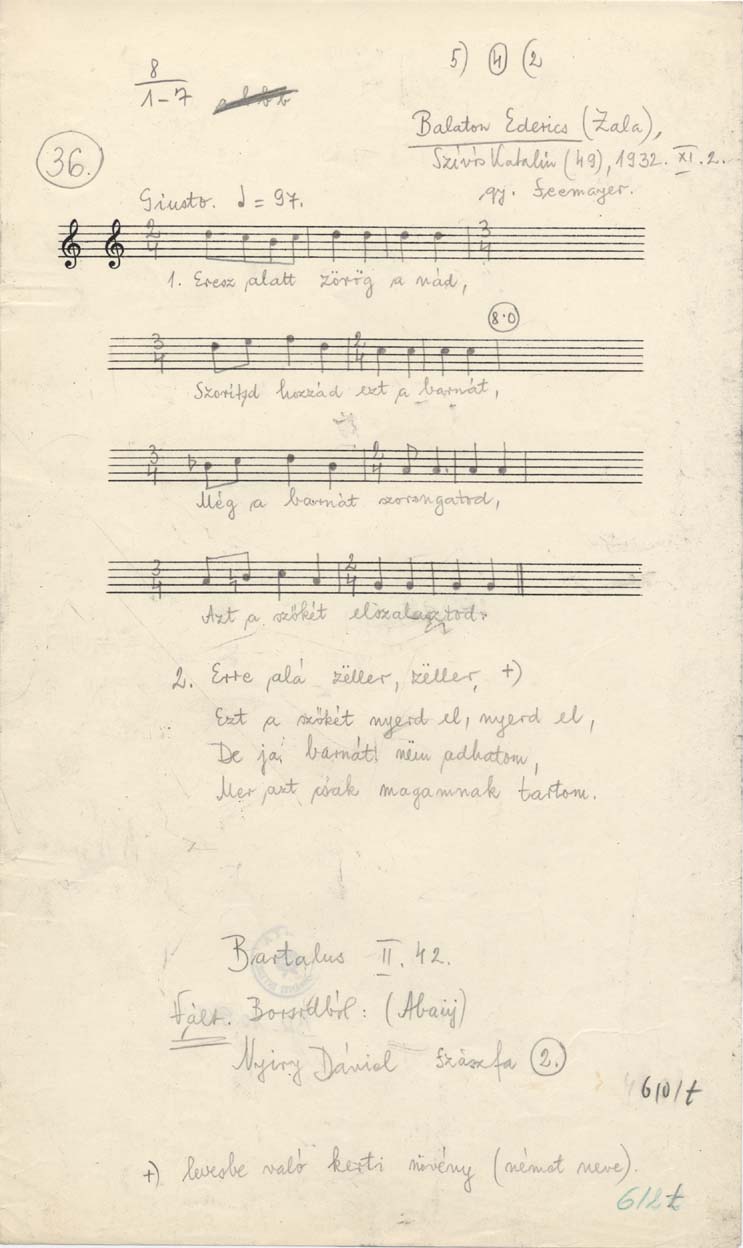 5) 4 (2
8
1-7
36.
Balaton Ederics (Zala),
Szívós Katalin (49), 1932. XI. 2.
gy. Seemayer.
Giusto. = 97.
2
4
3
4
1. Eresz alatt zörög a nád,
8·0
3
4
2
4
Szoritsd hozzád ezt a barnát,
3
4
2
4
Még a barnát szorongatod,
3
4
2
4
Azt a szőkét elszalasztod.
2. Erre alá zëller, zëller, +)
Ezt a szőkét nyerd el, nyerd el,
De ja barnát nëm adhatom,
Mer azt csak magamnak tartom.
Bartalus II. 42.
Vált. Borsodból: (Abaúj)
Nyiry Dániel Szászfa 2.
610/t
+) levesbe való kerti növény (német neve).
612t